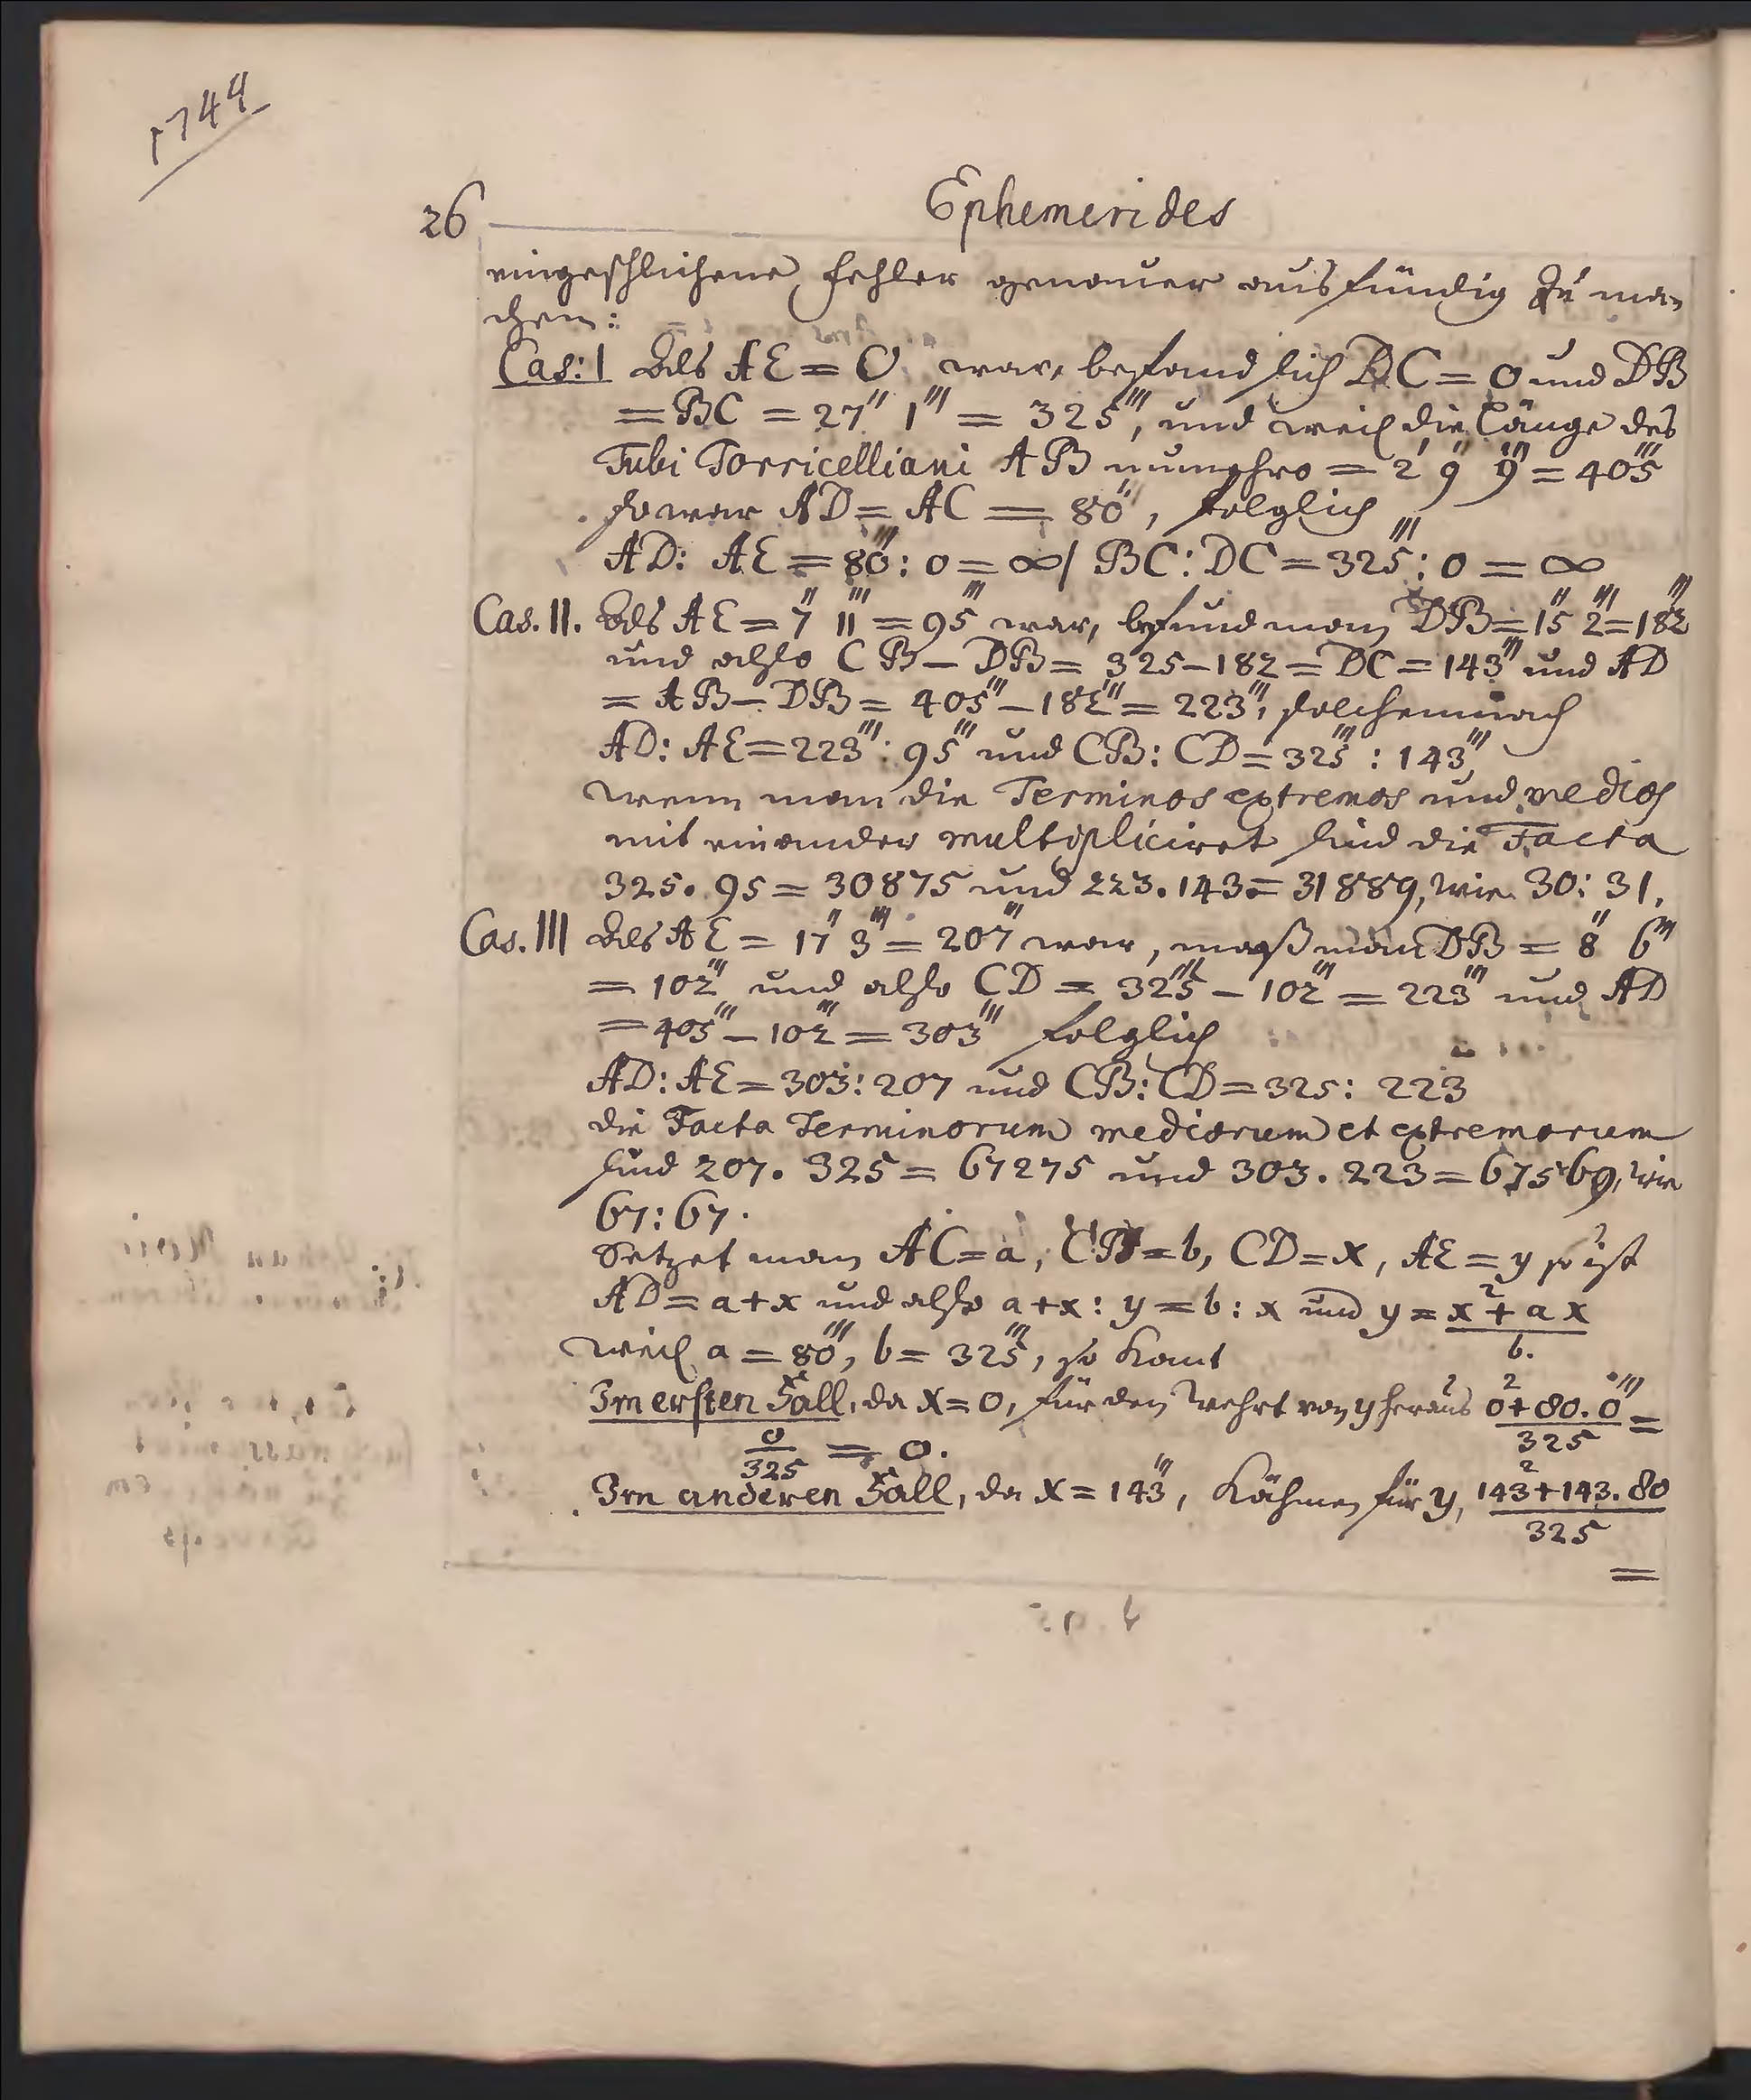 1744
26 Ephemerides
eingeschlichene Fehler genauer ausfündig zu ma-
chen:
Cas: I Als AE = 0 war, befand sich DC = 0 und DB
= BC = 27'' 1''' = 325''', und weil die Länge des
Tubi Torricelliani AB nunmehro = 2' 9'' 9''' = 405'''
so war AD = AC = 80''', folglich
AD: AE = 80''': 0 = ∞ / BC: DC = 325''': 0 = ∞
Cas. II. Als AE = 7'' 11''' = 95''' war, befund man DB = 15'' 2''' = 182'''
und also CB – DB = 325 – 182 = DC = 143''' und AD
= AB – DB = 405''' – 182''' = 223''', solchemnach
AD: AE = 223''': 95''' und CB: CD = 325''': 143'''
wenn man die Terminos extremos und medios
mit einander multipliciret sind die Facta
325. 95 = 30875 und 223. 143 = 31889, wie 30: 31.
Cas. III Als AE = 17'' 3''' = 207''' war, maß man DB = 8'' 6'''
= 102''' und also CD = 325''' – 102''' = 223''' und AD
= 405''' – 102''' = 303''' folglich
AD: AE = 303: 207 und CB: CD = 325: 223
die Facta Terminorum mediorum et extremorum
sind 207. 325 = 67275 und 303. 223 = 67569, wie
67: 67.
Setzet man AC = a, CB = b, CD = x, AE = y so ist
AD = a + x und also a + x: y = b: x und y = x² + ax / b.
weil a = 80''', b = 325''', so komt
Im ersten Fall, da x = 0, für den Wehrt von y heraus 0² + 80. 0''' / 325 =
0 / 325 = 0.
Im anderen Fall, da x = 143''', kähmen für y, 143² + 143. 80 / 325
=